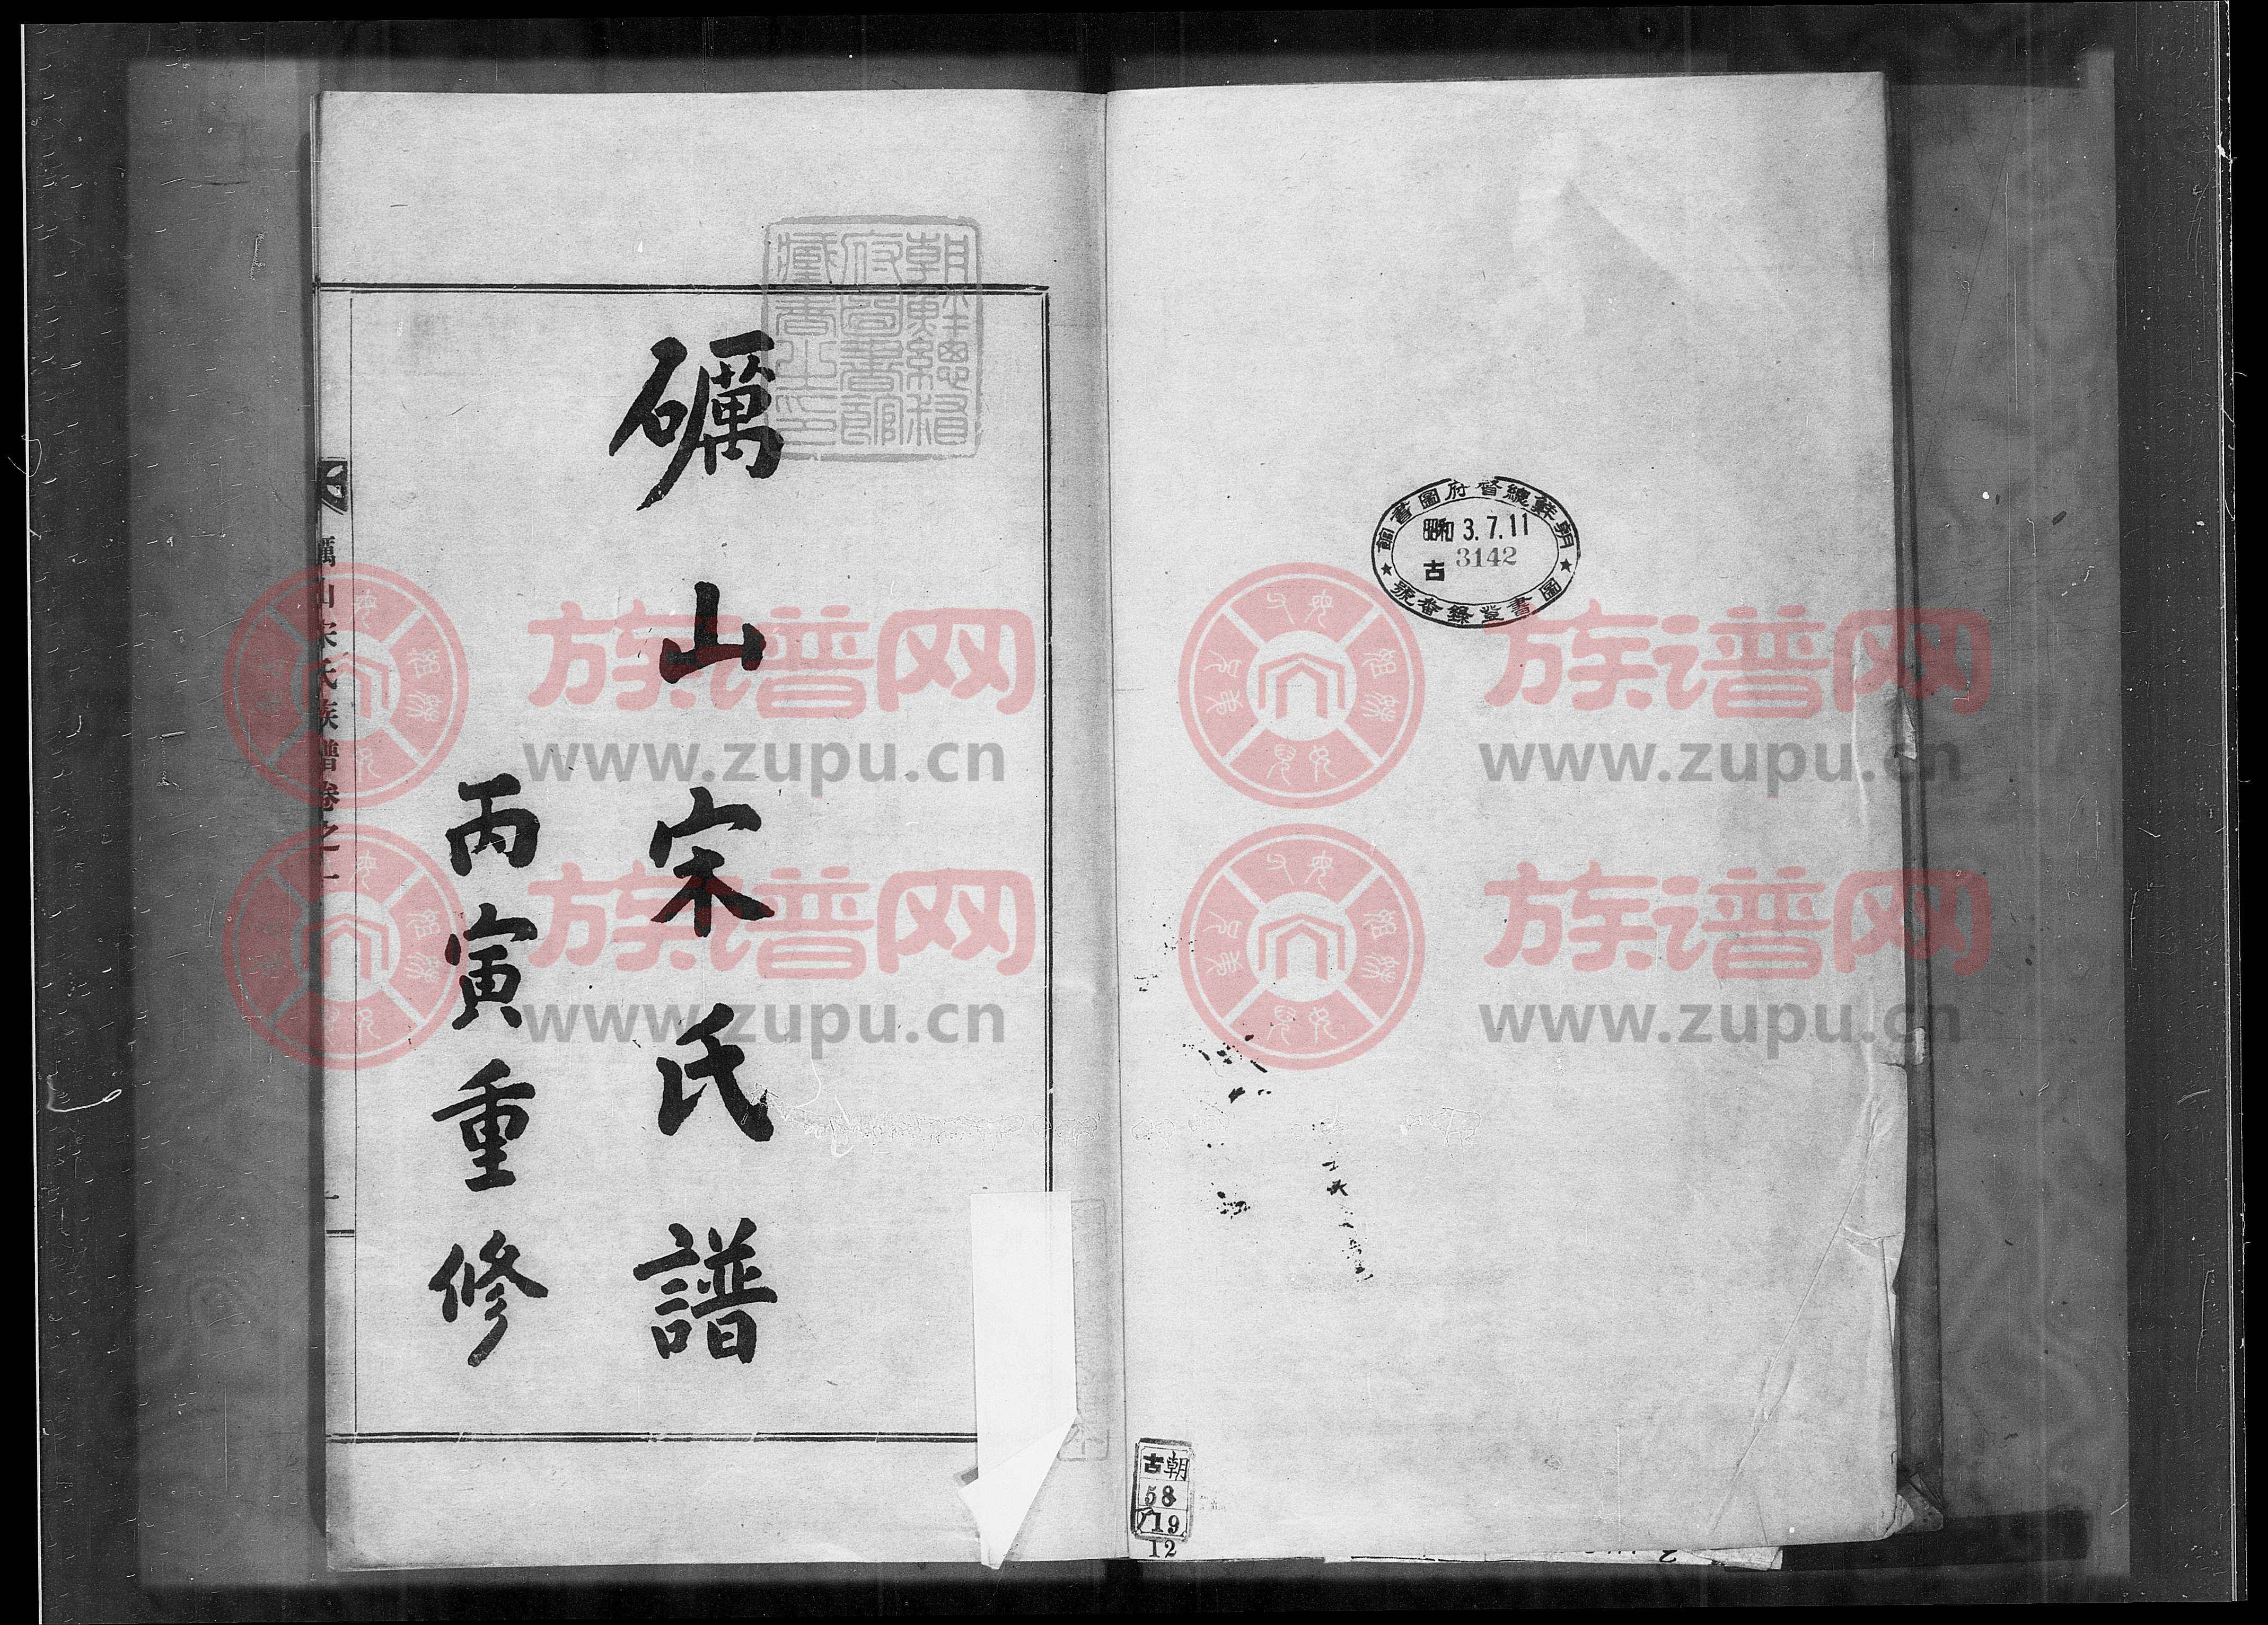 朝鮮總督府圖書館
昭和3.7.11
古 3142
圖書登錄番號
朝鮮總督
府圖書館
藏書之印
礪山宋氏譜
丙寅重修
礪山宋氏族譜卷之一
一
古朝
58
19
12
族谱网
www.zupu.cn
族谱网
www.zupu.cn
族谱网
www.zupu.cn
族谱网
www.zupu.cn